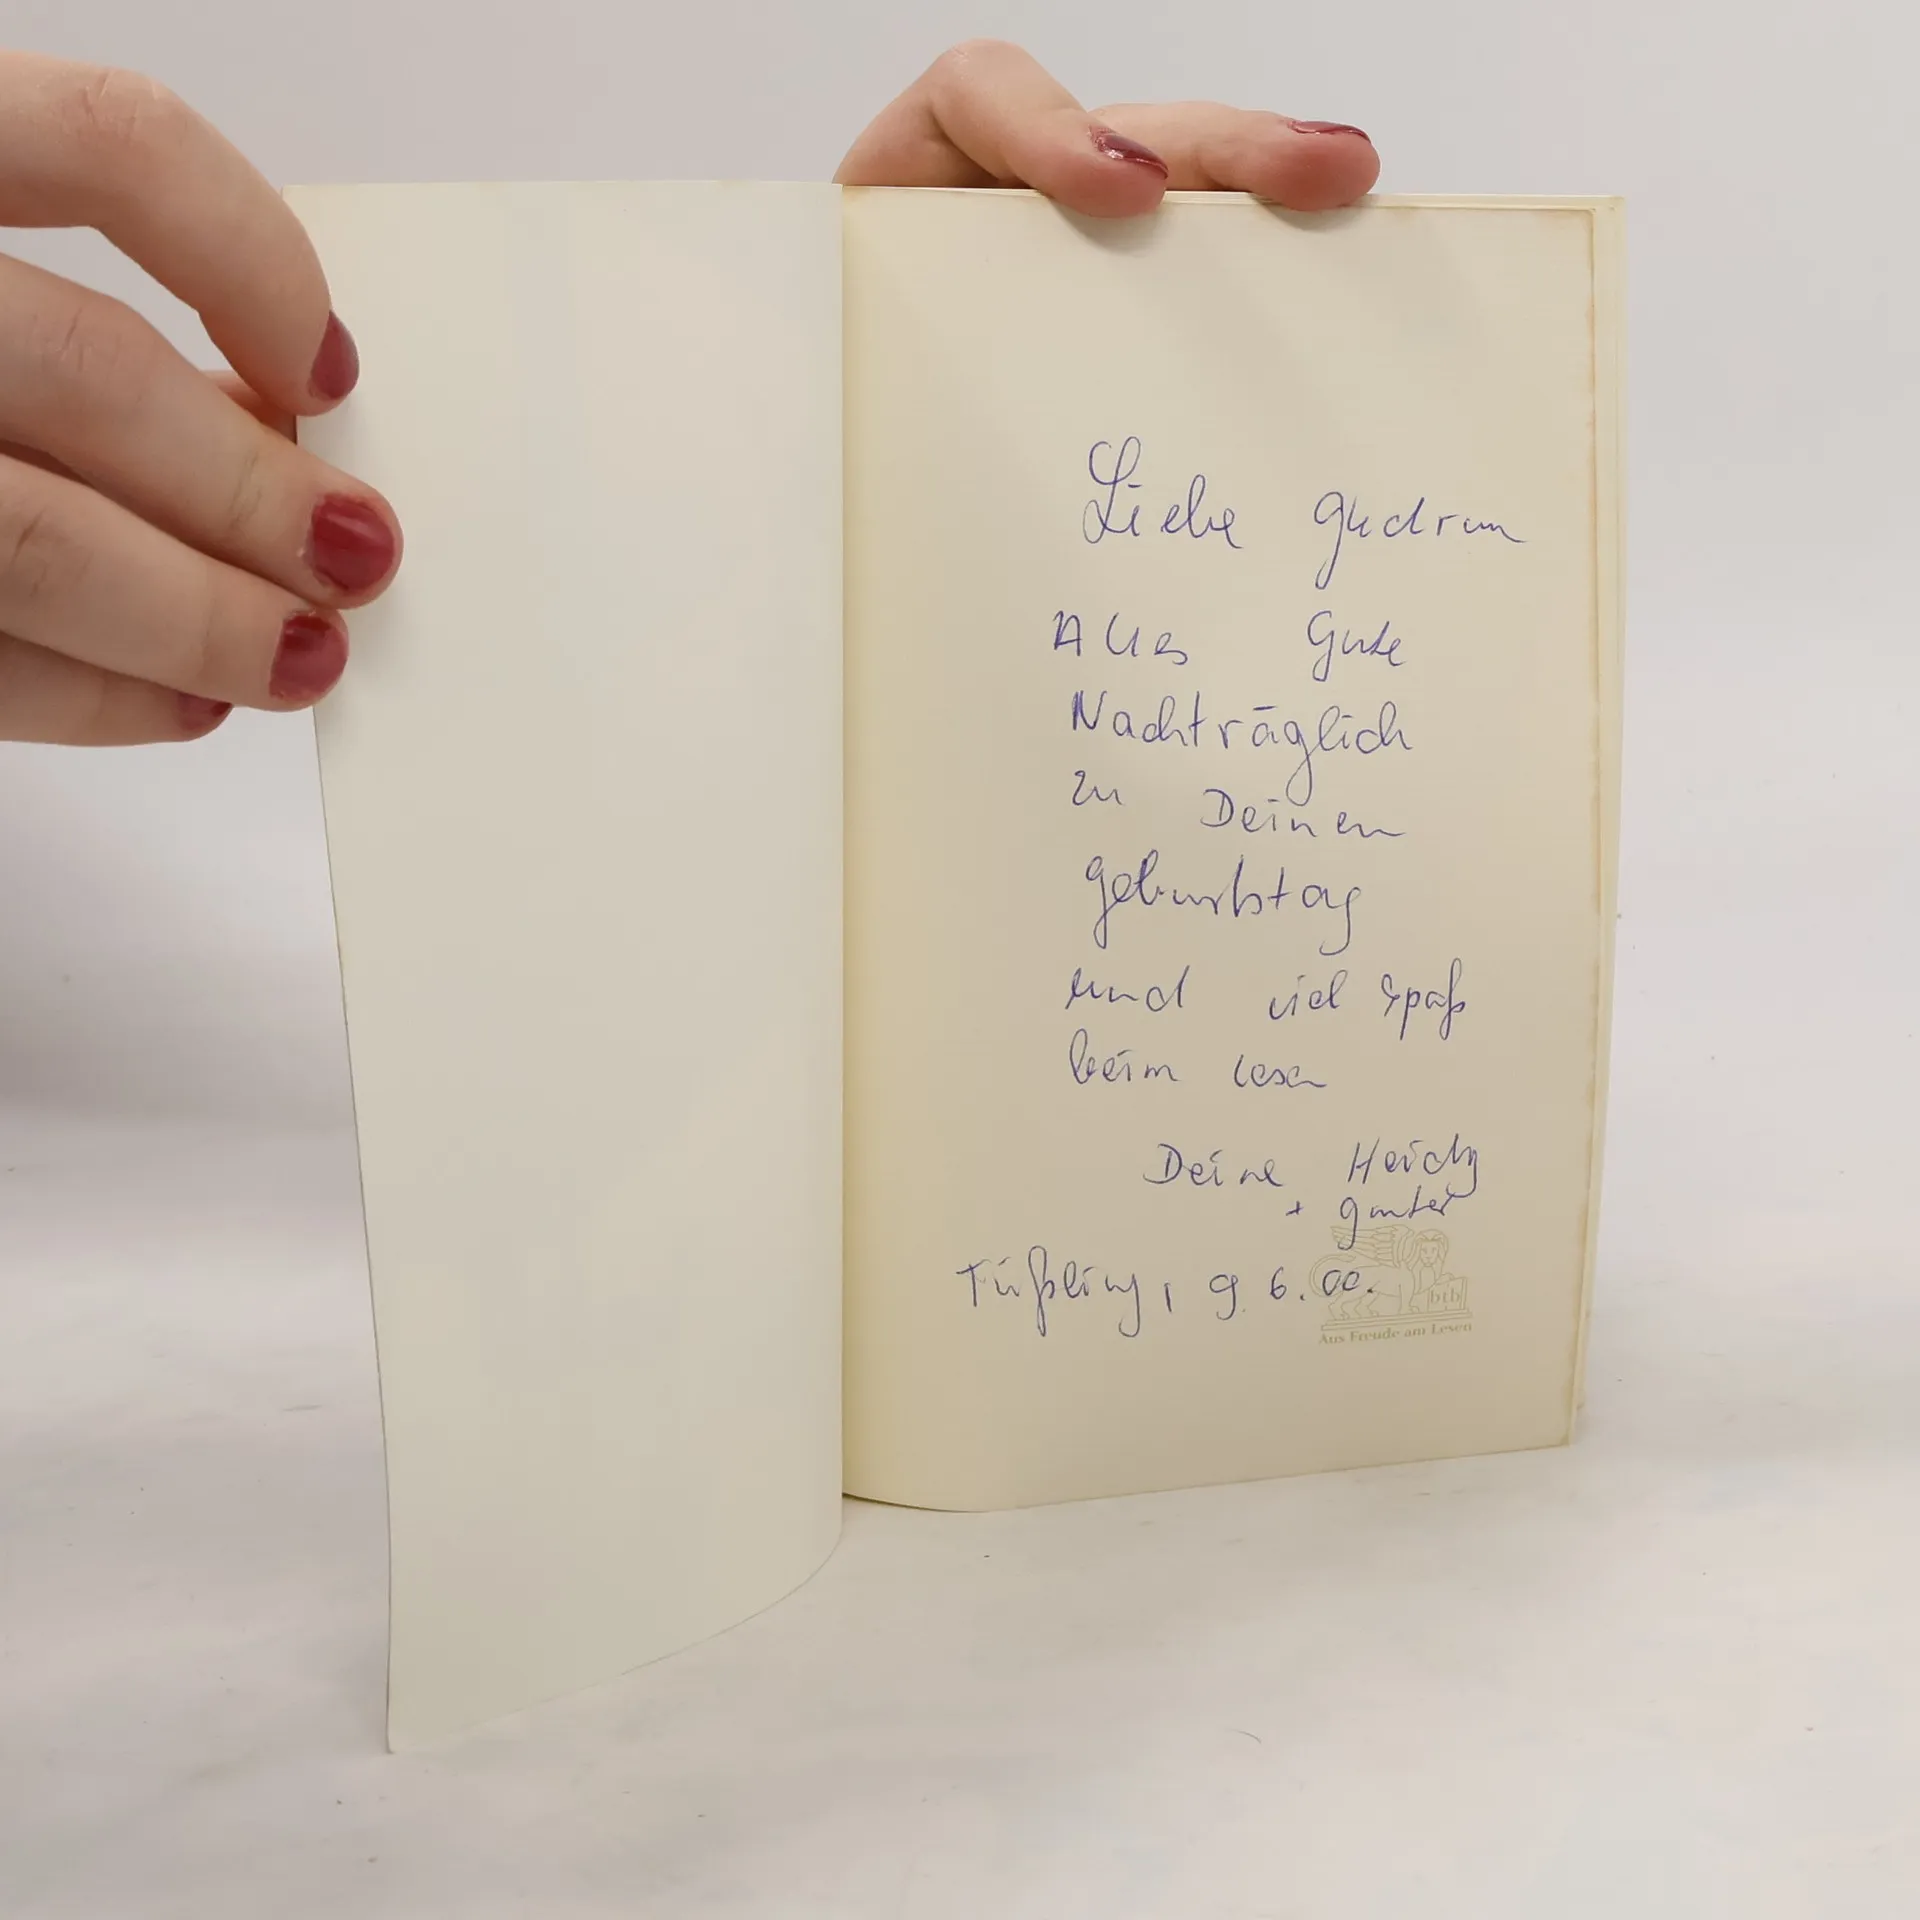 Liebe Gudrun
Alles Gute
Nachträglich
zu Deinen
Geburtstag
und viel Spaß
beim lesen
Deine Heidy
+ Günter
Tüßling, 9.6.00.
btb
Aus Freude am Lesen